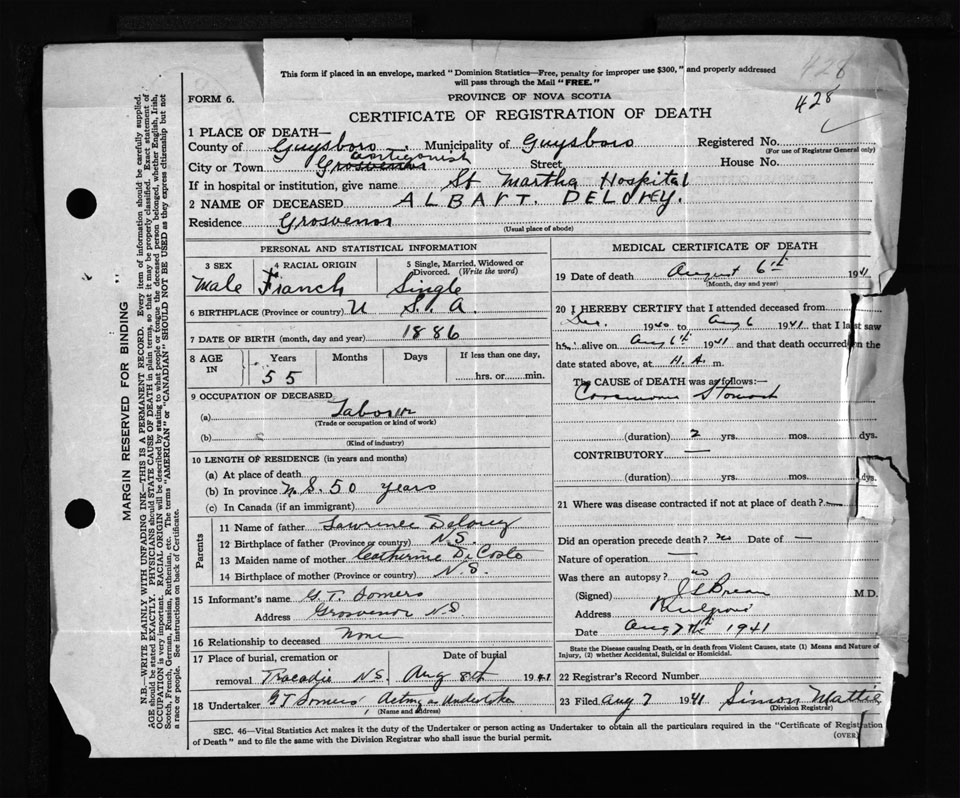 This form if placed in an envelope, marked "Dominion Statistics—Free, penalty for improper use $300," and properly addressed
will pass through the Mail "FREE."
428
428
FORM 6.
PROVINCE OF NOVA SCOTIA
CERTIFICATE OF REGISTRATION OF DEATH
1 PLACE OF DEATH—
County of Guysboro Municipality of Guysboro Registered No.
(For use of Registrar General only)
Antigonish
City or Town Grosvenor Street House No.
If in hospital or institution, give name St Martha Hospital
2 NAME OF DECEASED ALBART. DELOREY.
Residence Grosvenor
(Usual place of abode)
PERSONAL AND STATISTICAL INFORMATION
3 SEX 4 RACIAL ORIGIN 5 Single, Married, Widowed or Divorced. (Write the word)
Male Franch Single
6 BIRTHPLACE (Province or country) U S. A.
7 DATE OF BIRTH (month, day and year) 1886
8 AGE IN Years Months Days If less than one day,
55 hrs. or min.
9 OCCUPATION OF DECEASED
(a) Laborer
(Trade or occupation or kind of work)
(b)
(Kind of industry)
10 LENGTH OF RESIDENCE (in years and months)
(a) At place of death
(b) In province N.S. 50 years
(c) In Canada (if an immigrant)
Parents
11 Name of father Lawrence Delorey
12 Birthplace of father (Province or country) N.S.
13 Maiden name of mother Catherine DeCosta
14 Birthplace of mother (Province or country) N.S.
15 Informant's name G.T. Somers
Address Grosvenor N.S.
16 Relationship to deceased None
17 Place of burial, cremation or Date of burial
removal Tracadie N.S. Aug 8th 1941
18 Undertaker G T Somers, Acting Undertaker
(Name and address)
MEDICAL CERTIFICATE OF DEATH
19 Date of death August 6th 1941
(Month, day and year)
20 I HEREBY CERTIFY that I attended deceased from
1940 to Aug 6 1941 that I last saw
h alive on Aug 6th 1941 and that death occurred on the
date stated above, at m.
The CAUSE of DEATH was as follows:—
Carcinoma Stomach
(duration) 2 yrs. mos. dys.
CONTRIBUTORY —
(duration) yrs. mos. dys.
21 Where was disease contracted if not at place of death? —
Did an operation precede death? no Date of —
Nature of operation —
Was there an autopsy? no
(Signed) M.D.
Address Mulgrave
Date Aug 7th 1941
State the Disease causing Death, or in death from Violent Causes, state (1) Means and Nature of
Injury, (2) whether Accidental, Suicidal or Homicidal.
22 Registrar's Record Number
23 Filed Aug 7 1941 Simon Mattie
(Division Registrar)
SEC. 46—Vital Statistics Act makes it the duty of the Undertaker or person acting as Undertaker to obtain all the particulars required in the "Certificate of Registration
of Death" and to file the same with the Division Registrar who shall issue the burial permit.
(OVER)
MARGIN RESERVED FOR BINDING
N.B.—WRITE PLAINLY WITH UNFADING INK—THIS IS A PERMANENT RECORD. Every item of information should be carefully supplied.
AGE should be stated EXACTLY. PHYSICIANS should STATE CAUSE OF DEATH in plain terms, so that it may be properly classified. Exact statement of
OCCUPATION is very important. RACIAL ORIGIN will be described by stating to what people or tongue the deceased person belonged, whether English, Irish,
Scotch, French, German, Russian, Ruthenian, etc. The terms "AMERICAN" or "CANADIAN" SHOULD NOT BE USED as they express citizenship but not
a race or people. See instructions on back of Certificate.